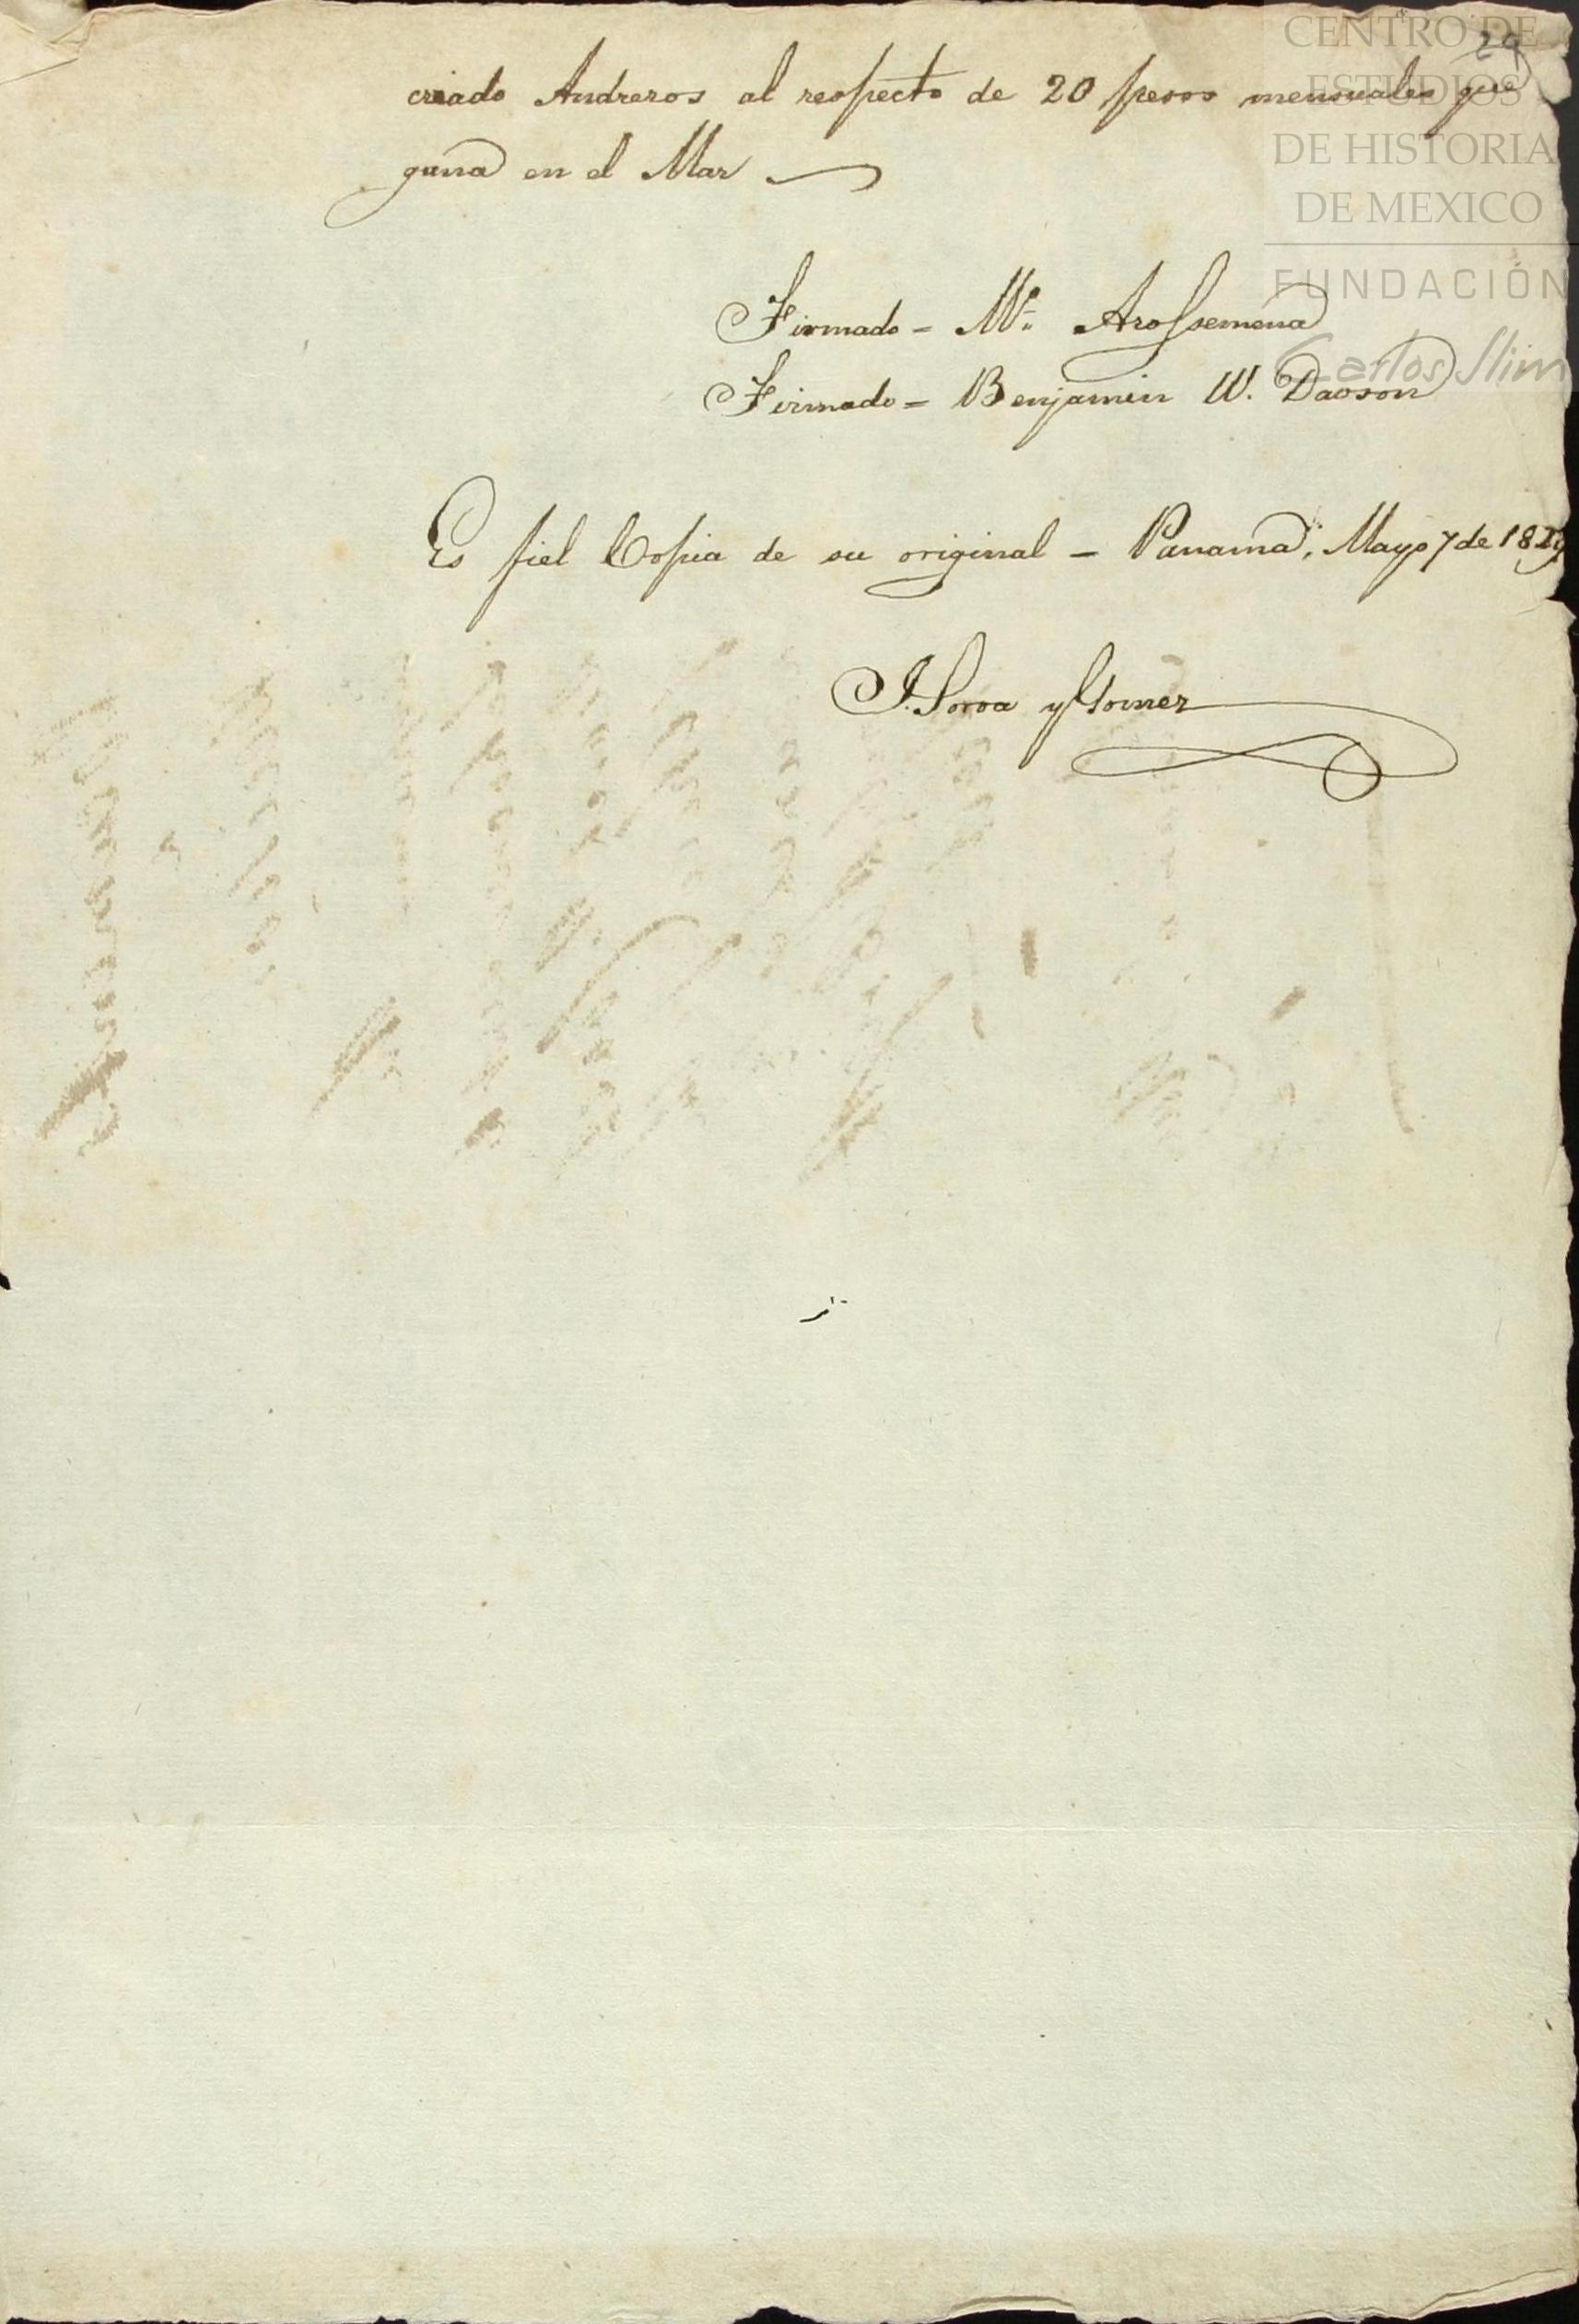 29
criado Andreros al respecto de 20 pesos mensuales que
gana en el Mar
Firmado = M.º Arossemena
Firmado = Benjamin W. Daoson
Es fiel Copia de su original = Panamá, Mayo 7 de
J. Soroa y Gomez
CENTRO DE
ESTUDIOS
DE HISTORIA
DE MEXICO
FUNDACIÓN
Carlos Slim